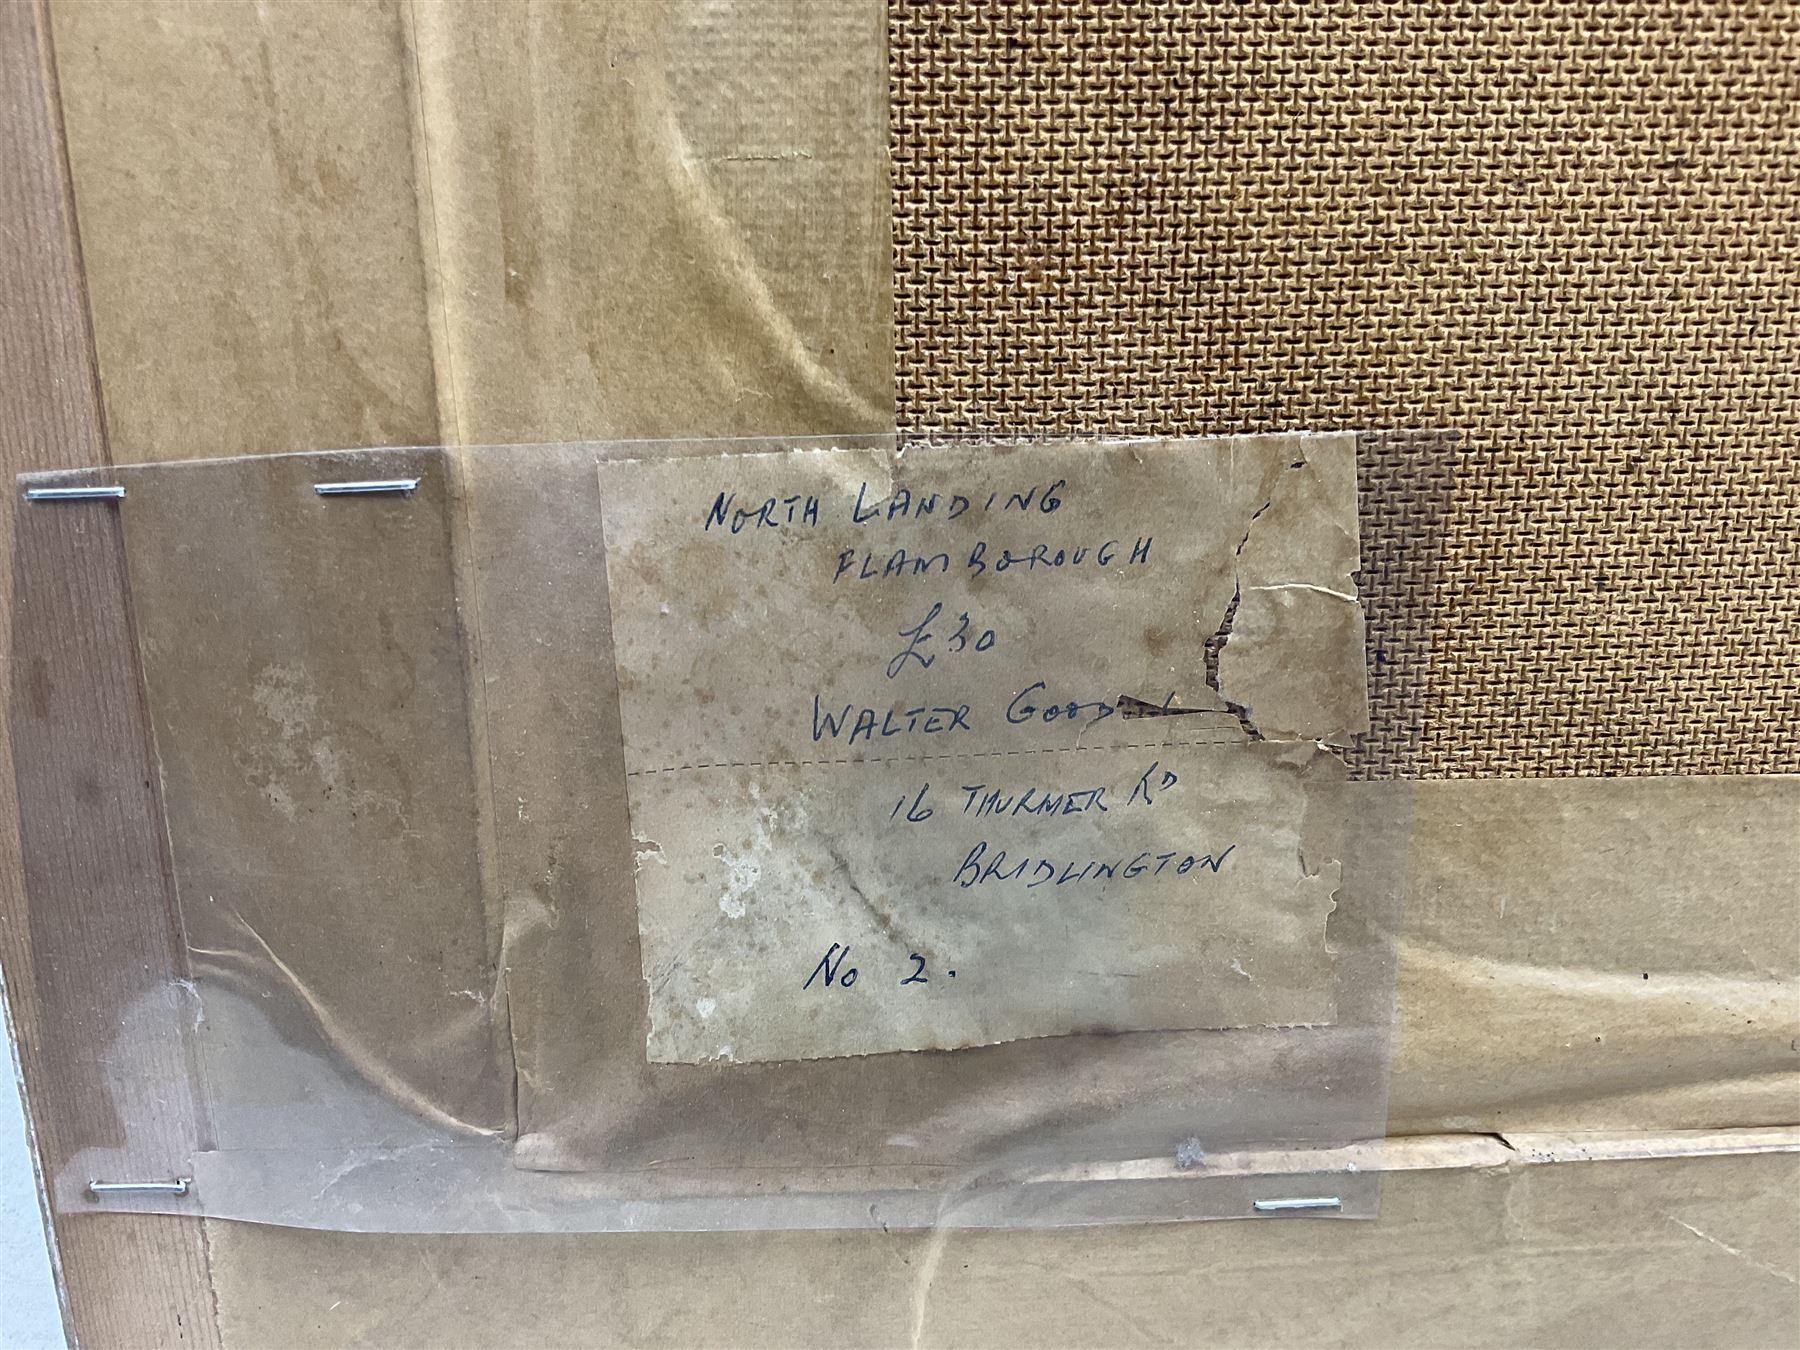 NORTH LANDING
FLAMBOROUGH
£30
WALTER
16 THURMER RD
BRIDLINGTON
No 2.